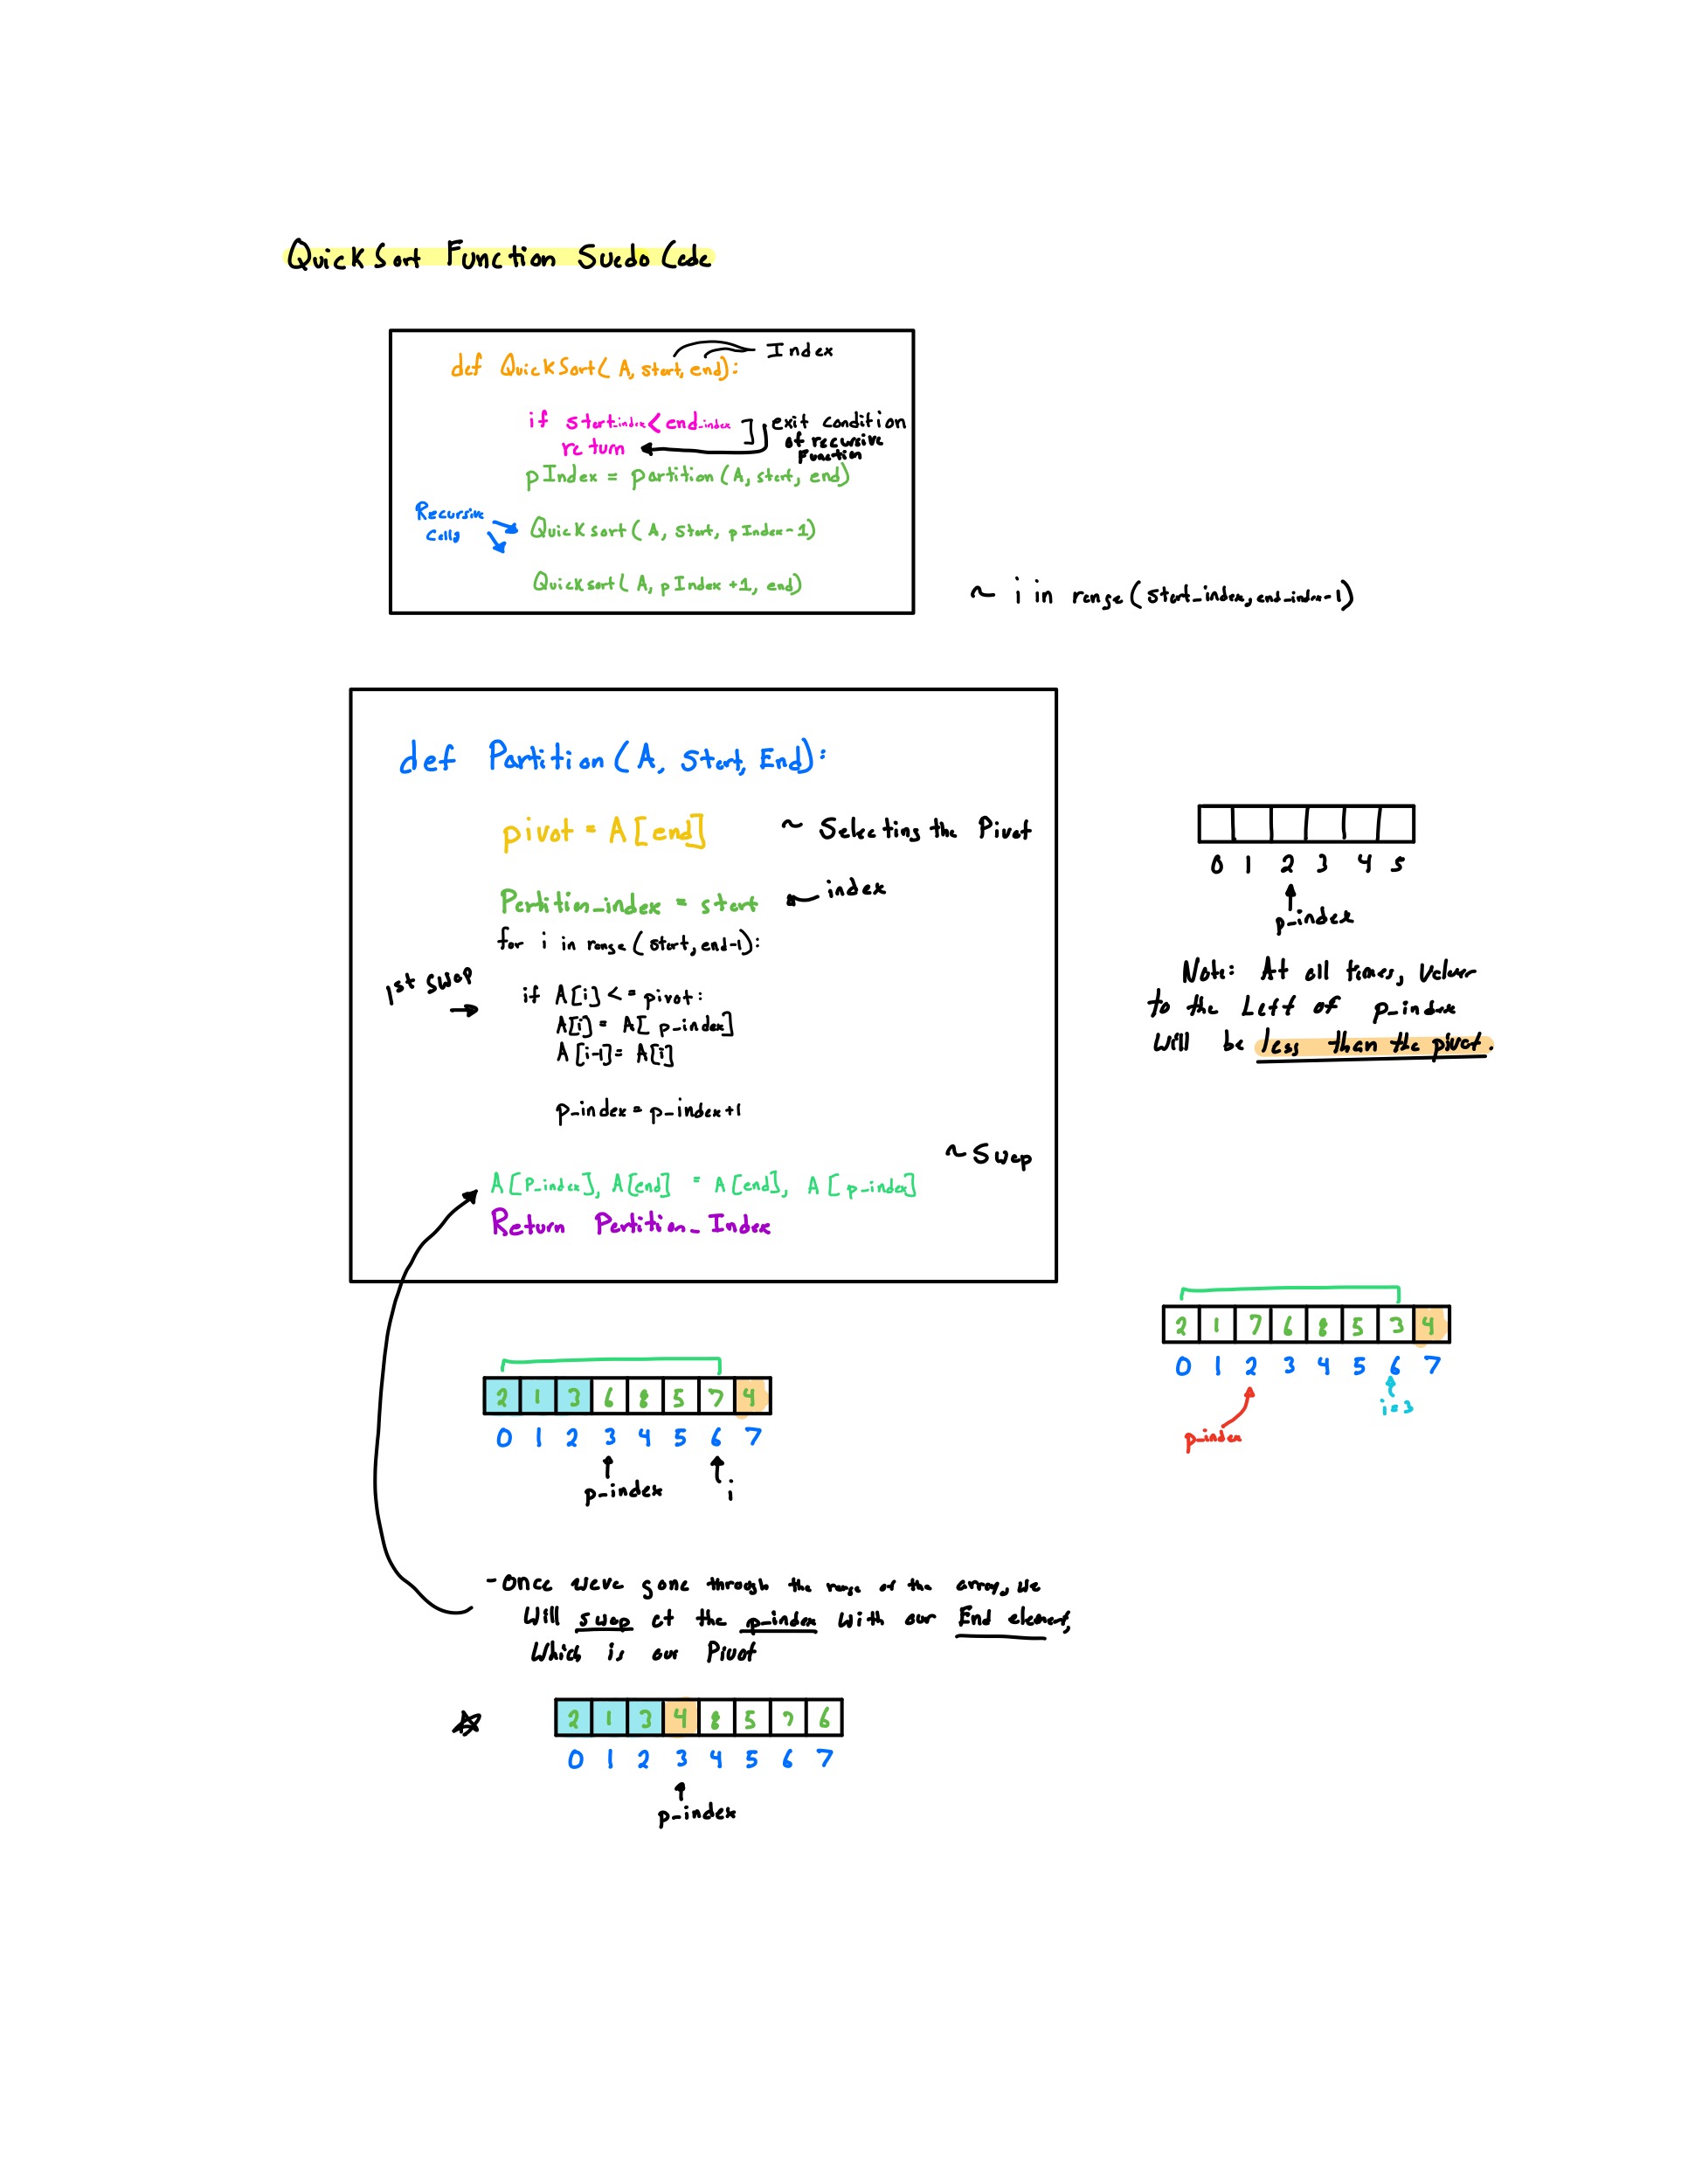 QuickSort Function Suedo Code
def QuickSort(A, start, end):
Index
if start_index < end_index
return
exit condition
of recursive
Function
pIndex = partition(A, start, end)
Recursive
Calls
Quicksort(A, start, pIndex-1)
Quicksort(A, pIndex+1, end)
~ i in range(start_index, end_index-1)
def Partition(A, Start, End):
pivot = A[end]
~ Selecting the Pivot
Partition_index = start
index
for i in range(start, end-1):
1st swap
if A[i] <= pivot:
A[i] = A[p_index]
A[i-1] = A[i]
p_index = p_index+1
~ Swap
A[P_index], A[end] = A[end], A[p_index]
Return Partition_Index
0 1 2 3 4 5
p_index
Note: At all times, Values
to the Left of p_index
will be less than the pivot.
2 1 7 6 8 5 3 4
0 1 2 3 4 5 6 7
p_index
i=3
2 1 3 6 8 5 7 4
0 1 2 3 4 5 6 7
p_index
i
- Once weve gone through the range of the array, we
Will swap at the p_index with our End element,
Which is our Pivot
2 1 3 4 8 5 7 6
0 1 2 3 4 5 6 7
p_index